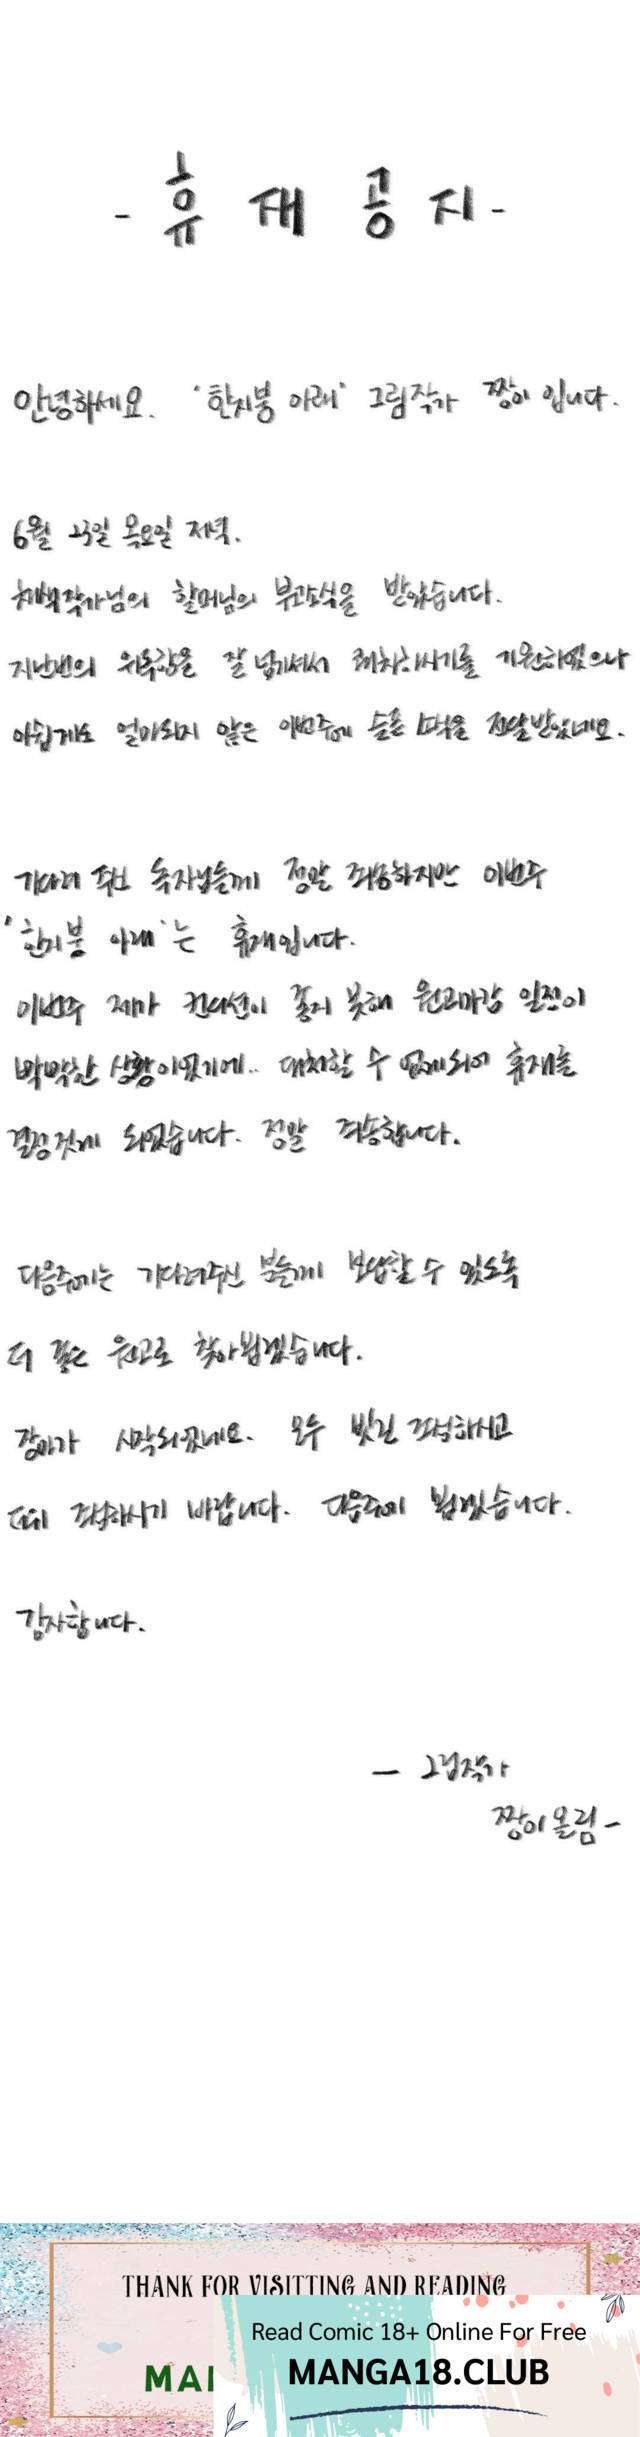 - 휴재공지 -
안녕하세요. '한지붕 아래' 그림작가 짱이 입니다.
6월 23일 목요일 저녁.
작가님의 할머님의 부고소식을 받았습니다.
지난번의 위독함을 잘 넘기셔서 쾌차하시기를 기원하였으나
아쉽게도 얼마되지 않은 이번주에 슬픈 소식을 전달받았네요.
기다려 주신 독자님들께 정말 죄송하지만 이번주
'한지붕 아래'는 휴재입니다.
이번주 제가 컨디션이 좋지 못해 원고마감 일정이
빡빡한 상황이었기에.. 대처할 수 없게되어 휴재를
결정짓게 되었습니다. 정말 죄송합니다.
다음주에는 기다려주신 분들께 보답할 수 있도록
더 좋은 원고로 찾아뵙겠습니다.
장마가 시작되었네요. 모두 빗길 조심하시고
더위 조심하시기 바랍니다. 다음주에 뵙겠습니다.
감사합니다.
- 그림작가
짱이 올림 -
THANK FOR VISITTING AND READING
Read Comic 18+ Online For Free
MANGA18.CLUB